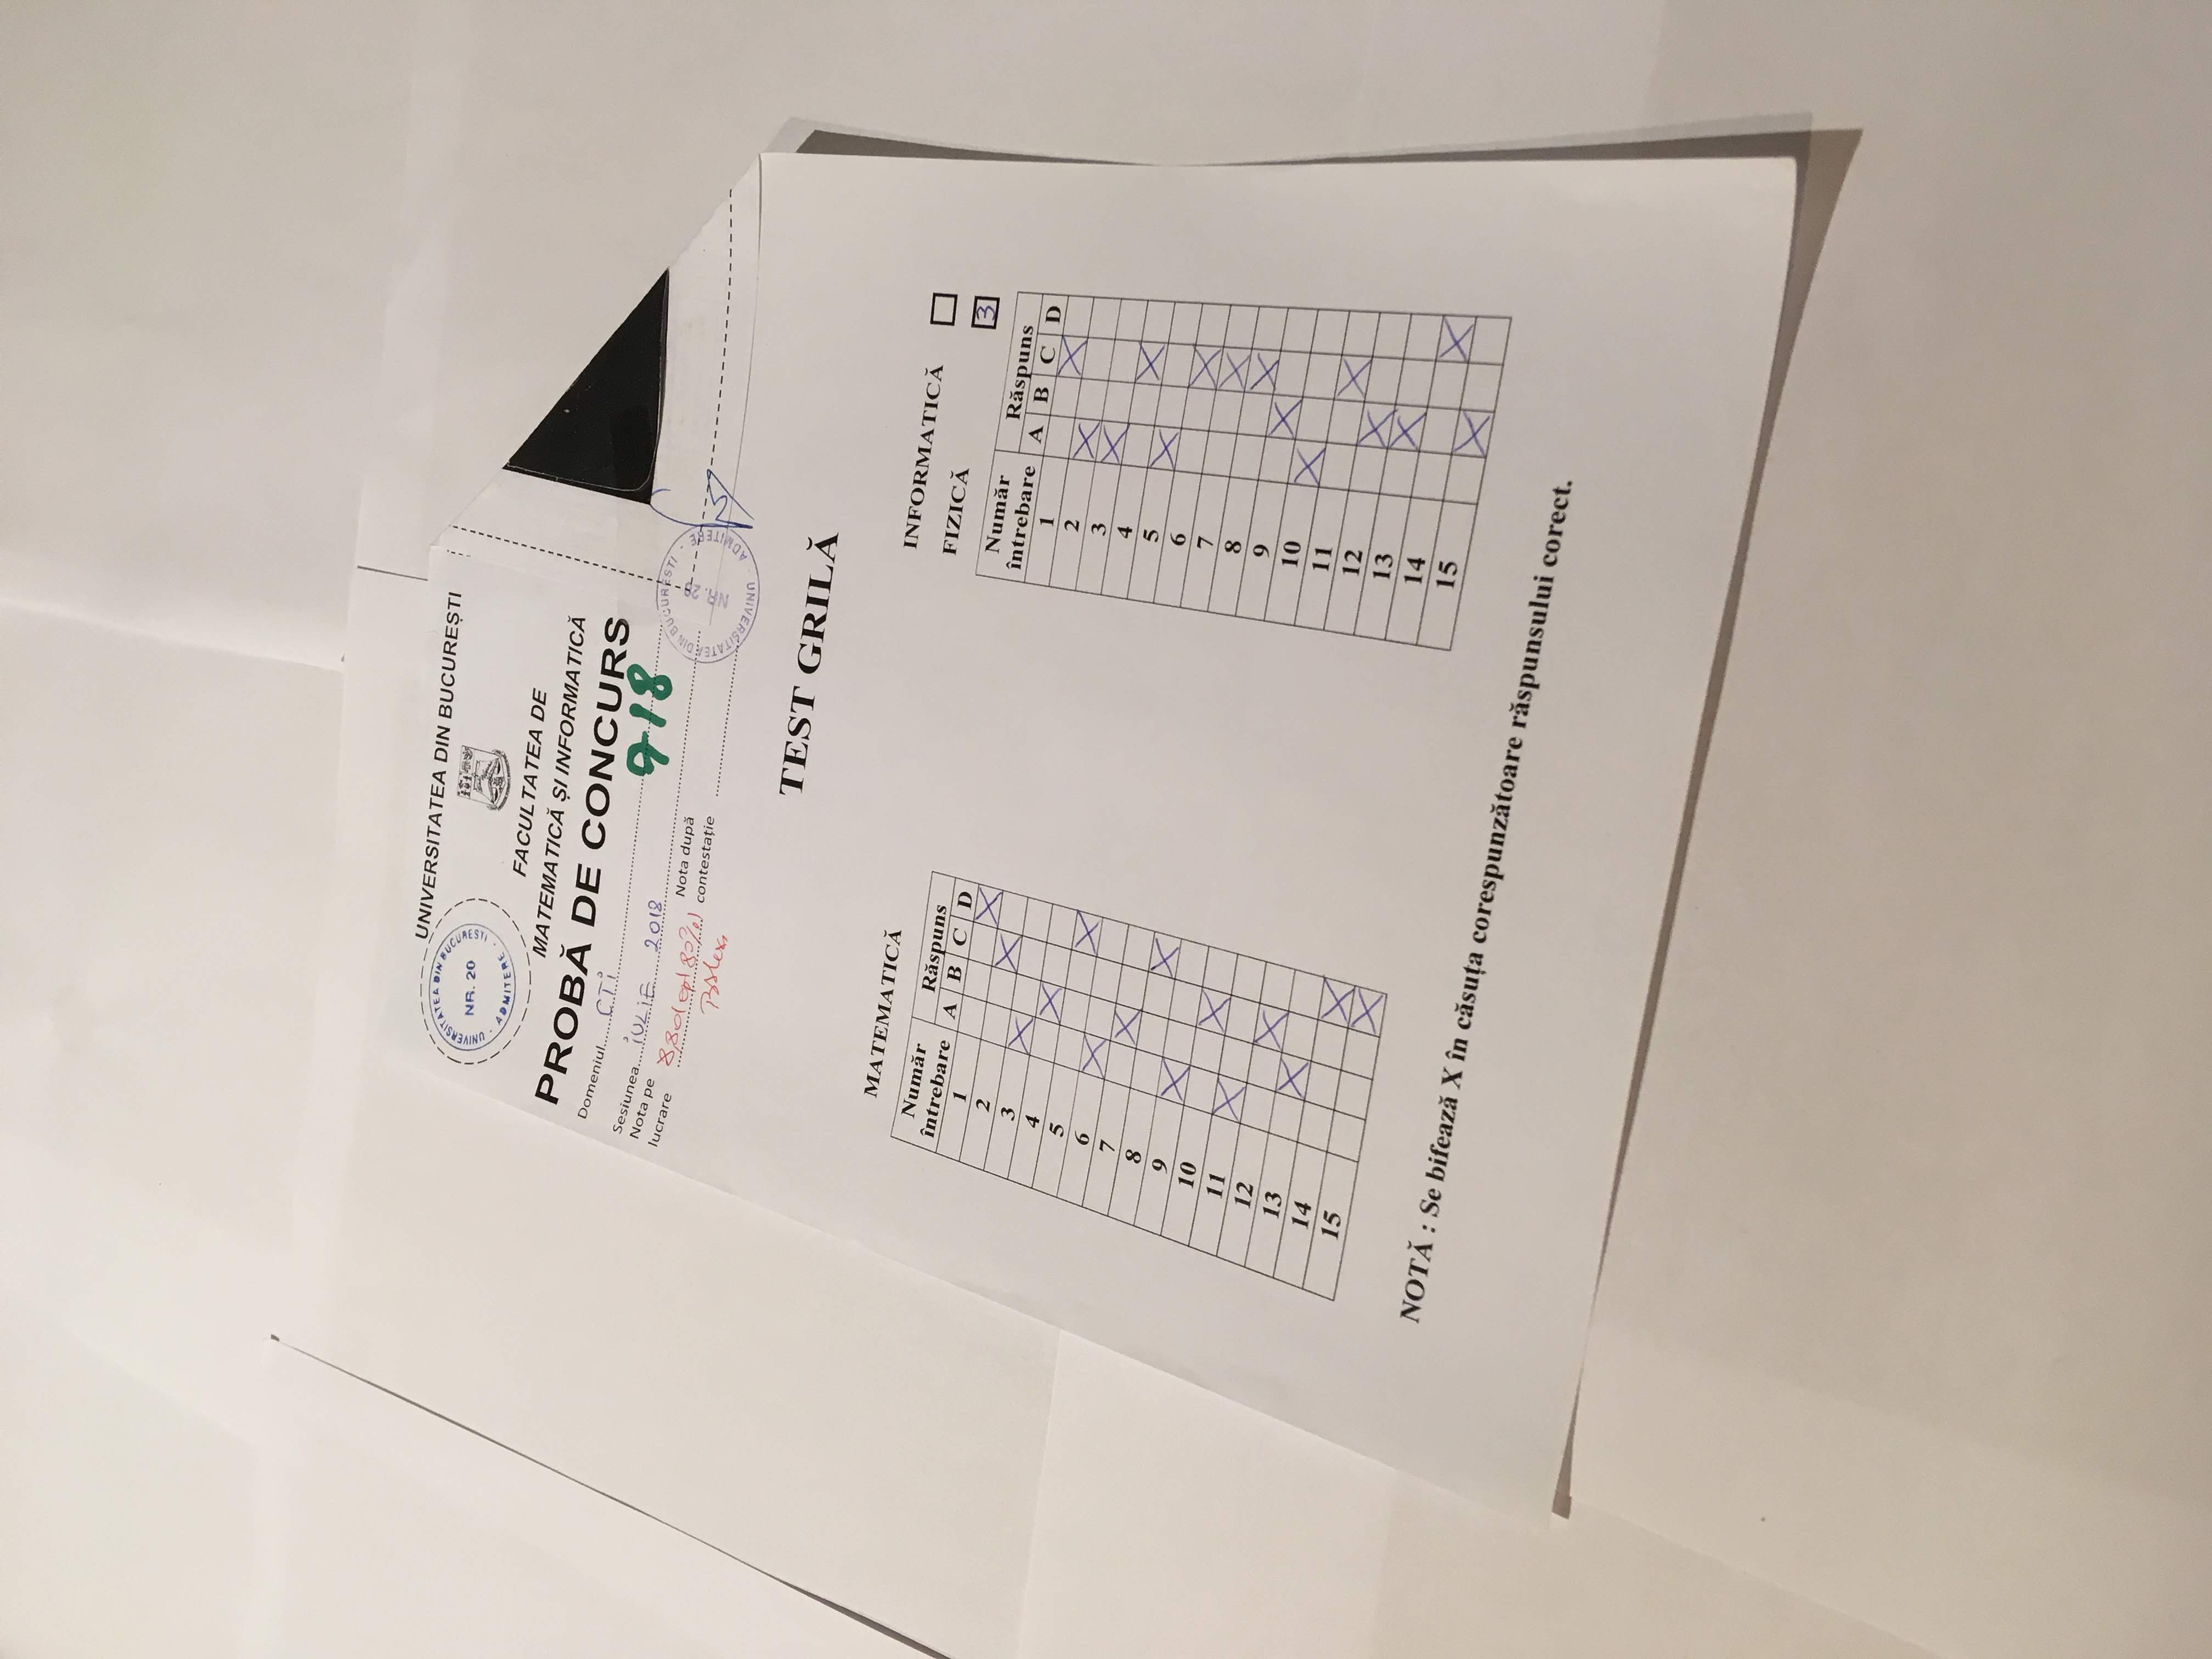 UNIVERSITATEA DIN BUCUREȘTI
UNIVERSITATEA DIN BUCUREȘTI
NR. 20
ADMITERE
FACULTATEA DE
MATEMATICĂ ȘI INFORMATICĂ
PROBĂ DE CONCURS
Domeniul CTi
918
Sesiunea iULiE 2018
Nota pe lucrare 8,80
Nota după contestație
UNIVERSITATEA DIN BUCUREȘTI
NR. 20
ADMITERE
TEST GRILĂ
MATEMATICĂ
Număr întrebare Răspuns
A B C D
1 X
2 X
3 X
4 X
5 X
6 X
7 X
8 X
9 X
10 X
11 X
12 X
13 X
14 X
15 X
INFORMATICĂ
FIZICĂ 3
Număr întrebare Răspuns
A B C D
1 X
2 X
3 X
4 X
5 X
6 X
7 X
8 X
9 X
10 X
11 X
12 X
13 X
14 X
15 X
NOTĂ : Se bifează X în căsuța corespunzătoare răspunsului corect.